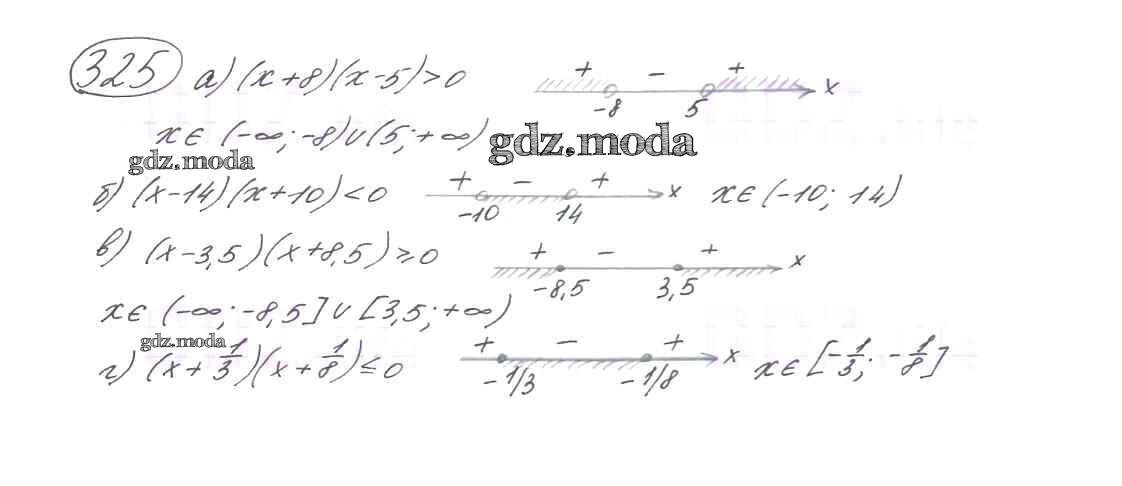 325 а) (x+8)(x-5)>0 + - + -8 5 x
x∈ (-∞; -8)∪(5; +∞) gdz.moda
gdz.moda
б) (x-14)(x+10)<0 + - + -10 14 x x∈(-10; 14)
в) (x-3,5)(x+8,5)≥0 + - + -8,5 3,5 x
x∈ (-∞; -8,5]∪[3,5; +∞)
gdz.moda
г) (x+1/3)(x+1/8)≤0 + - + -1/3 -1/8 x x∈[-1/3; -1/8]